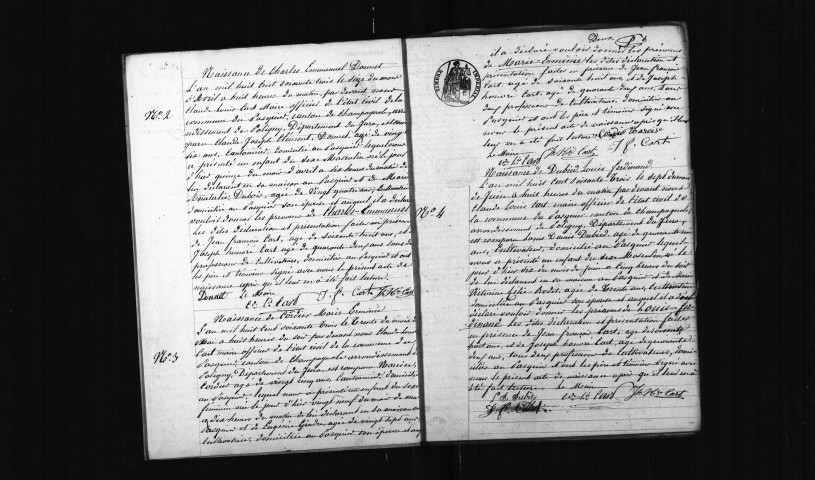 Naissance de Charles Emmanuel Donnet
L'an mil huit cent soixante trois le seize du mois
d'avril a huit heure du matin par devant nous
Nº 2
Claude Louis Cart Maire officier de l'état civil de la
commune du Pasquier, canton de Champagnole, arron-
dissement de Poligny, Département du Jura, est com-
paru Claude Joseph Donnet, agé de vingt
six ans, Cantonnier, domicilié au Pasquier lequel nous
a présenté un enfant du sexe Masculin né le jour
d'hier quinze du mois d'avril a six heures du matin de
lui déclarant en sa maison au Pasquier et de Marie
Dubois, agée de vingt quatre ans, cultivatrice
domiciliée au Pasquier son épouse et auquel il a déclaré
vouloir donner les prenoms de Charles-Emmanuel
les dites déclaration et présentation faites en présence
de Jean françois Cart, agé de soixante huit ans, et de
Joseph honoré Cart agé de quarante deux ans tous deux
profession de cultivateurs, domiciliés au Pasquier et ont
les père et témoins signé avec nous le présent acte de
naissance après qu'il leur en a été fait lecture.
Donnet Le Maire
Cde Ls Cart J. f. Cart Jh Hré Cart
Naissance de Cordier Marie Erminie
L'an mil huit cent soixante trois le trente du mois de
Mai a huit heures du soir par devant nous Claude Louis
Nº 3
Cart maire officier de l'état civil de la commune du
Pasquier, canton de Champagnole arrondissement de
Poligny, Département du Jura, est comparu Narcisse
Cordier agé de vingt cinq ans, Cantonnier, domicilié
au Pasquier lequel nous a présenté un enfant du sexe
féminin né le jour d'hier vingt neuf du mois de mai
a dix heures du matin de lui déclarant en sa maison au
Pasquier et de Eugénie agée de vingt sept ans
cultivatrice, domiciliée au Pasquier son épouse et auquel
il a déclaré vouloir donner les prénoms
de Marie Erminie les dites déclaration et
présentation faites en présence de Jean françois
Cart, agé de soixante huit ans et de Joseph
honoré Cart, agé de quarante deux ans, tous
deux profession de cultivateurs domiciliés au
Pasquier et ont les père et témoins signé avec
nous le présent acte de naissance après qu'il
leur en a été fait lecture Cordier Narcisse
Le Maire
Cde Ls Cart Jh Hré Cart J. f. Cart
Naissance de Dubied Louis Ferdinand
L'an mil huit cent soixante trois le sept du mois
de Juin a huit heures du matin par devant nous
Claude Louis Cart, maire officier de l'état civil de
Nº 4
la commune du Pasquier canton de Champagnole
arrondissement de Poligny, Département du Jura,
est comparu Louis Dubied, agé de quarante
ans, Cultivateur, domicilié au Pasquier lequel
nous a présenté un enfant du sexe Masculin né le
jour d'hier six du mois de Juin a cinq heures du soir
de lui déclarant en sa maison au Pasquier et de Marie
agée de trente ans, Cultivatrice
domiciliée au Pasquier son épouse et auquel il a
déclaré vouloir donner les prenoms de Louis fer-
dinand les dites déclaration et présentation faites
en présence de Jean françois Cart, agé de soixante
huit ans, et de Joseph honoré Cart, agé de quarante
deux ans, tous deux profession de Cultivateurs, domi-
ciliés au Pasquier et ont les père et témoins signé avec
nous le présent acte de naissance après qu'il leur en a
été fait lecture. Le Maire
Dubied Cde Ls Cart Jh Hré Cart
J. f. Cart